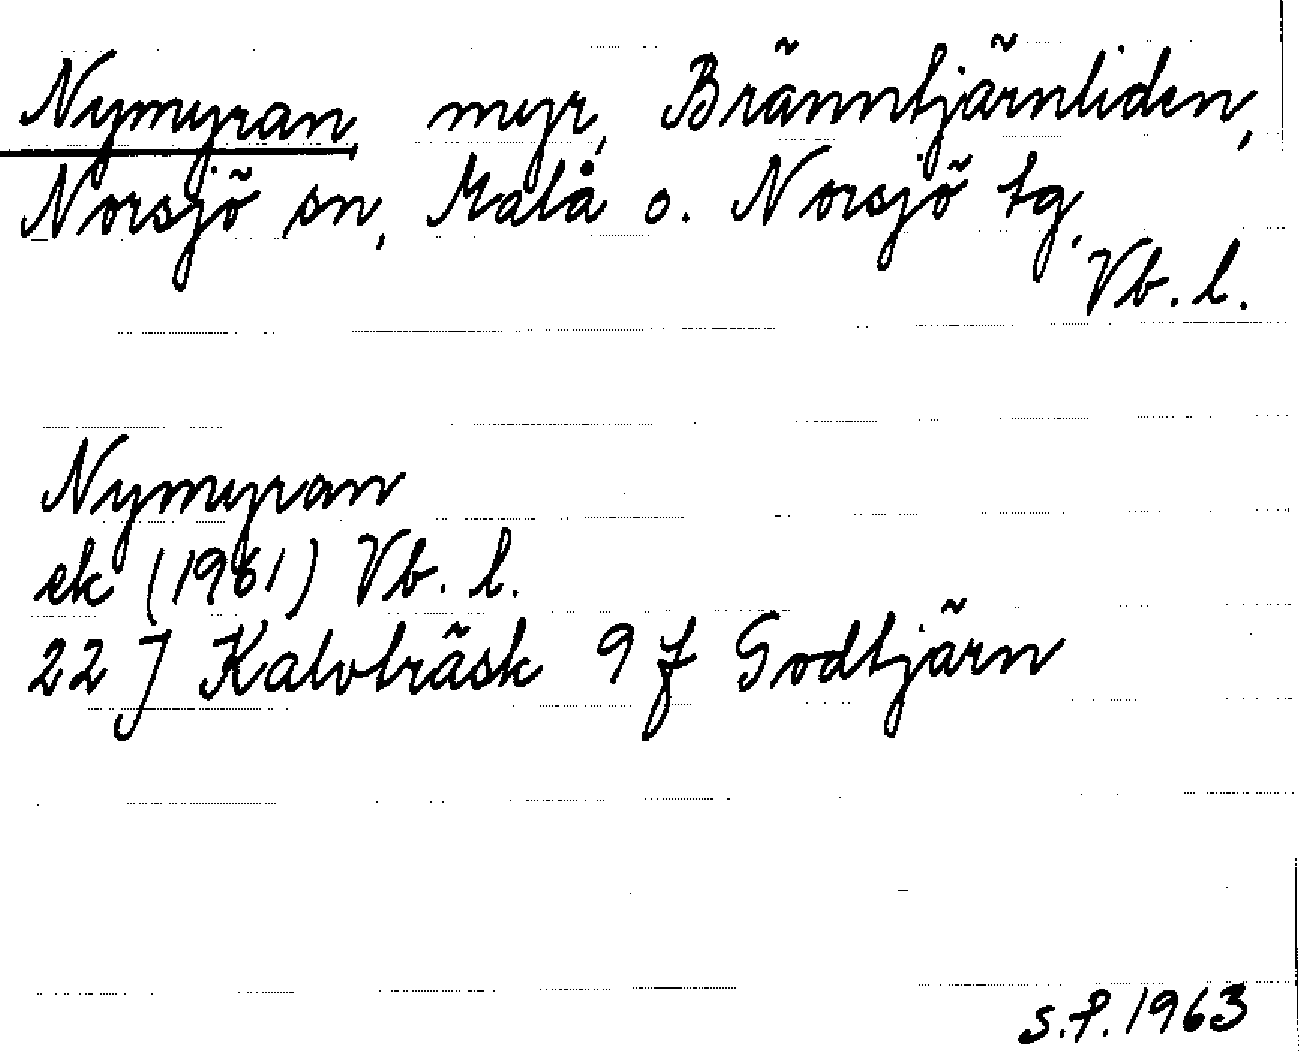 Nymyran, myr, Bränntjärnliden,
Norsjö sn, Malå o. Norsjö tg,
Vb. l.
Nymyran
ek (1961) Vb. l.
22 J Kalvträsk 9 f Godtjärn
s.f. 1963